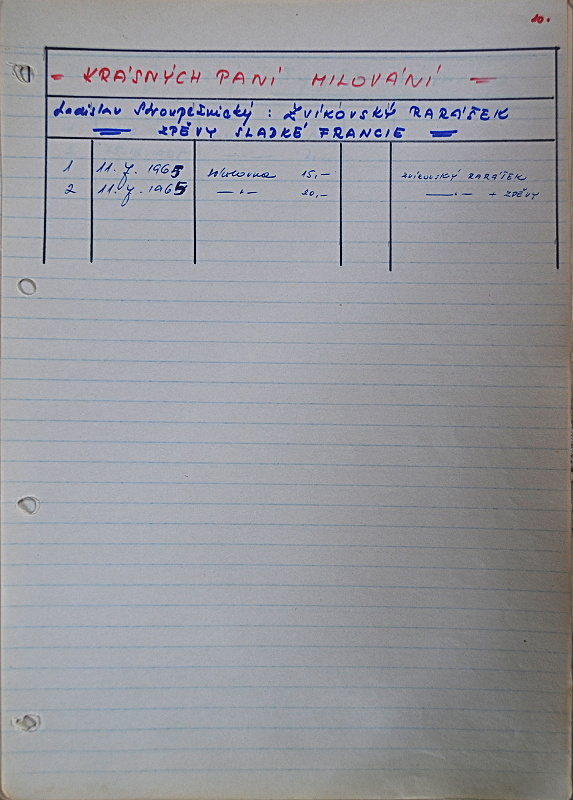 10.
- KRÁSNÝCH PANÍ MILOVÁNÍ -
Ladislav Stroupežnický : ZVÍKOVSKÝ RARÁŠEK
ZPĚVY SLADKÉ FRANCIE
1 11. 7. 1965 15,- ZVÍKOVSKÝ RARÁŠEK
2 11. 7. 1965 —"— 20,- —"— + ZPĚVY